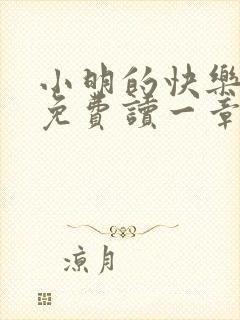 小明的快樂
免費讀一章
涼月